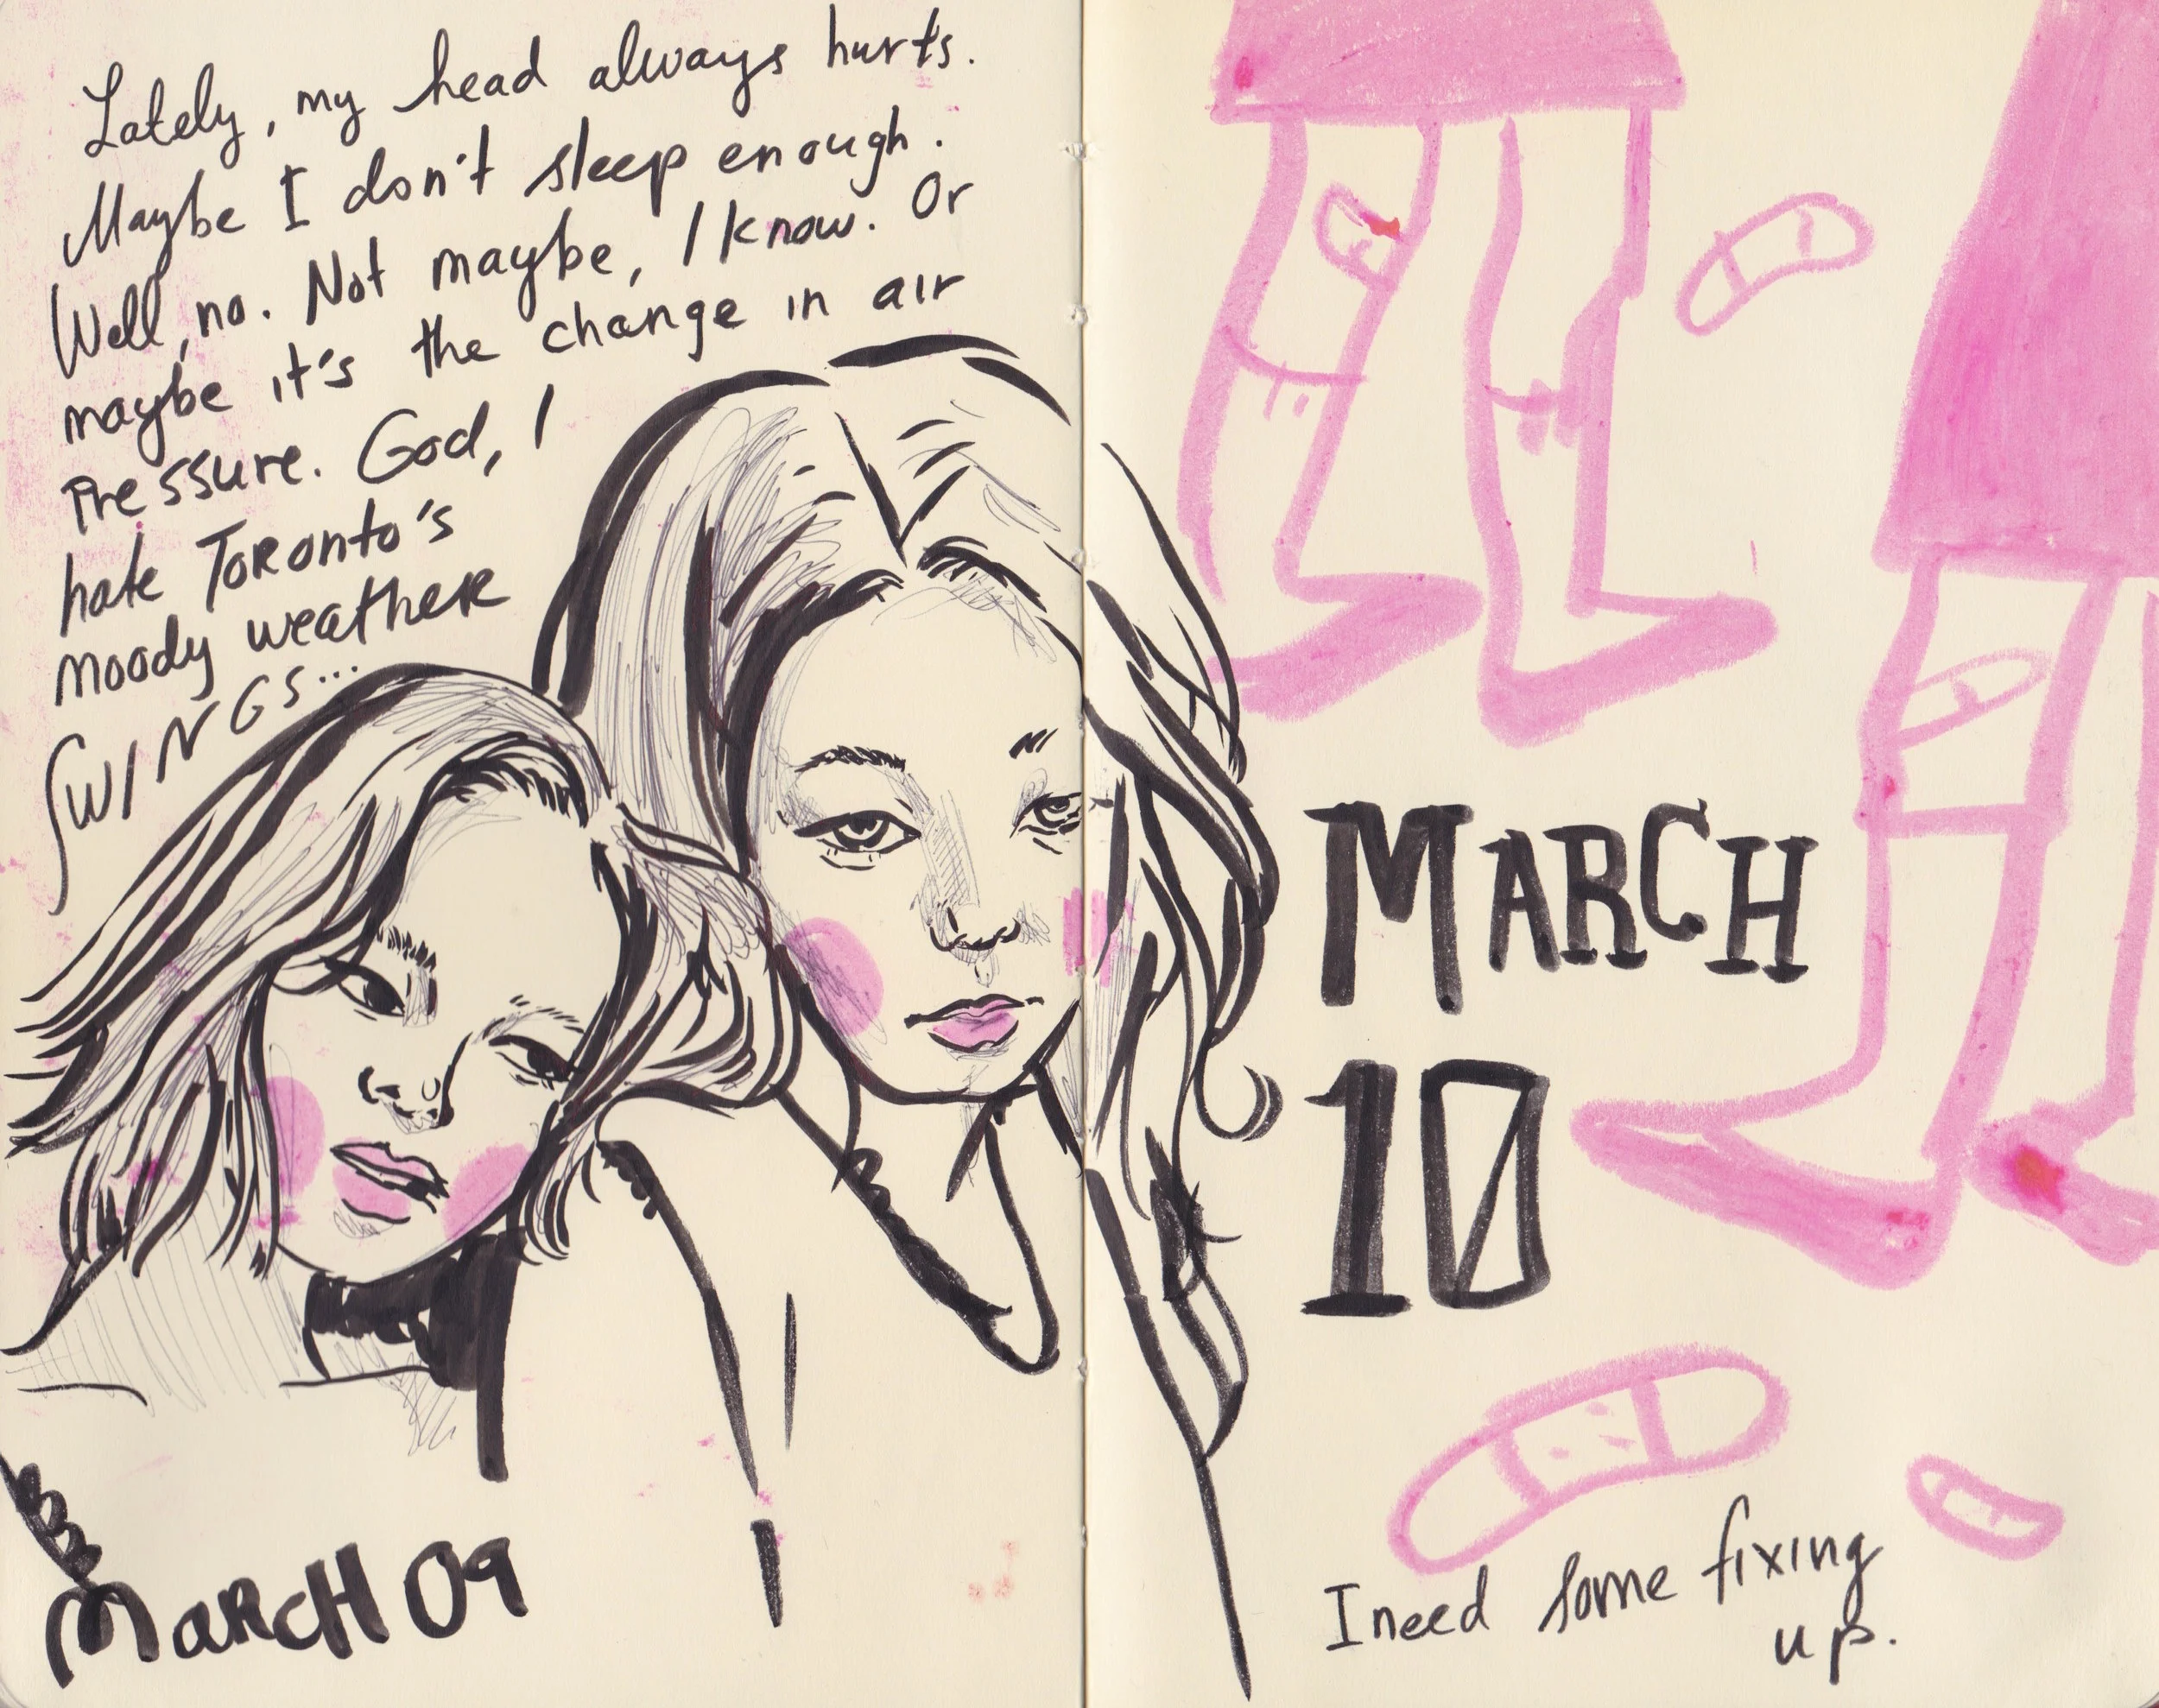 Lately, my head always hurts.
Maybe I don't sleep enough.
Well, no. Not maybe, I know. Or
maybe it's the change in air
Pressure. God, I
hate TORonto's
moody weatheR
SWINGS...
MaRcH 09
MARCH
10
I need some fixing
up.